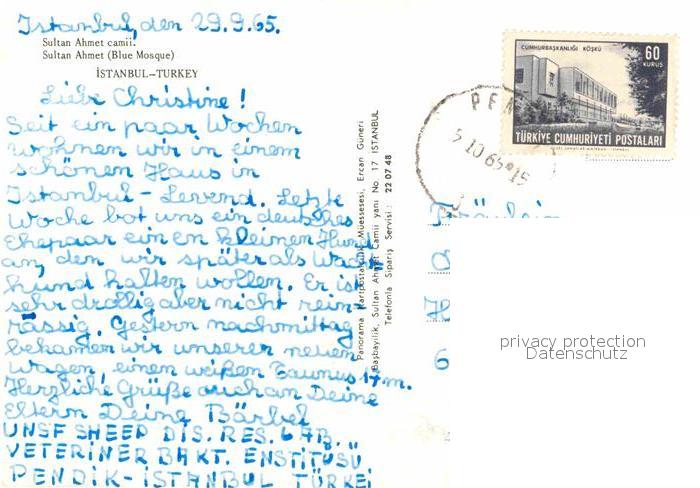 Istanbul, den 29.9.65.
Sultan Ahmet camii.
Sultan Ahmet (Blue Mosque)
İSTANBUL-TURKEY
Liebe Christine!
Seit ein paar Wochen
wohnen wir in einem
schönen Haus in
Istanbul - Levend. Letzte
Woche bot uns ein deutsches
Ehepaar einen kleinen Hund
an, den wir später als Wach-
hund halten wollen. Er ist
sehr drollig aber nicht rein-
rassig. Gestern nachmittag
bekamen wir unseren neuen
Wagen, einen weißen Taunus 17 m.
Herzliche Grüße auch an Deine
Eltern Deine Bärbel
UNSF SHEEP DIS. RES. LAB.
VETERINER BAKT. ENSTİTÜSÜ
PENDİK-İSTANBUL TÜRKEI
Panorama Kartpostalcılık Müessesesi, Ercan Güneri
Başbayilik, Sultan Ahmet Camii yanı No 17 İSTANBUL
Telefonla Sipariş Servisi: 22 07 48
CUMHURBAŞKANLIĞI KÖŞKÜ
60
KURUŞ
TÜRKİYE CUMHURİYETİ POSTALARI
PEN
5 10 65 15
Fräulein
privacy protection
Datenschutz